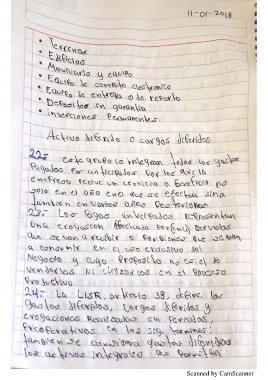 11-01-2018
• Terrenos
• Edificios
• Mobiliario y equipo
• Equipo de computo electronico
• Equipo de entrega o de reparto
• Depositos en garantia
• Inversiones Permanentes.
Activo diferido o cargos diferidos.
22.- este grupo lo integran todos los gastos
Pagados Por anticipados Por los que la
empresa recibe un servicio o beneficio no
solo en el año en el que se efectua sino
tambien en varios años Posteriores
23.- Los Pagos anticipados representan
una erogacion efectuada Por servicios
que se van a recibir o Por bienes que se van
a consumir en el uso exclusivo del
Negocio y cuyo Proposito no es el de
venderlos Ni utilizarlos en el Proceso
Productivo
24.- La LISR, articulo 38, define los
gastos diferidos, cargos diferidos y
erogaciones Realizadas en Periodos
Preoperativos en los sig. terminos:
tambien se considera gastos diferidos
los activos intangibles que Permitan
Scanned by CamScanner